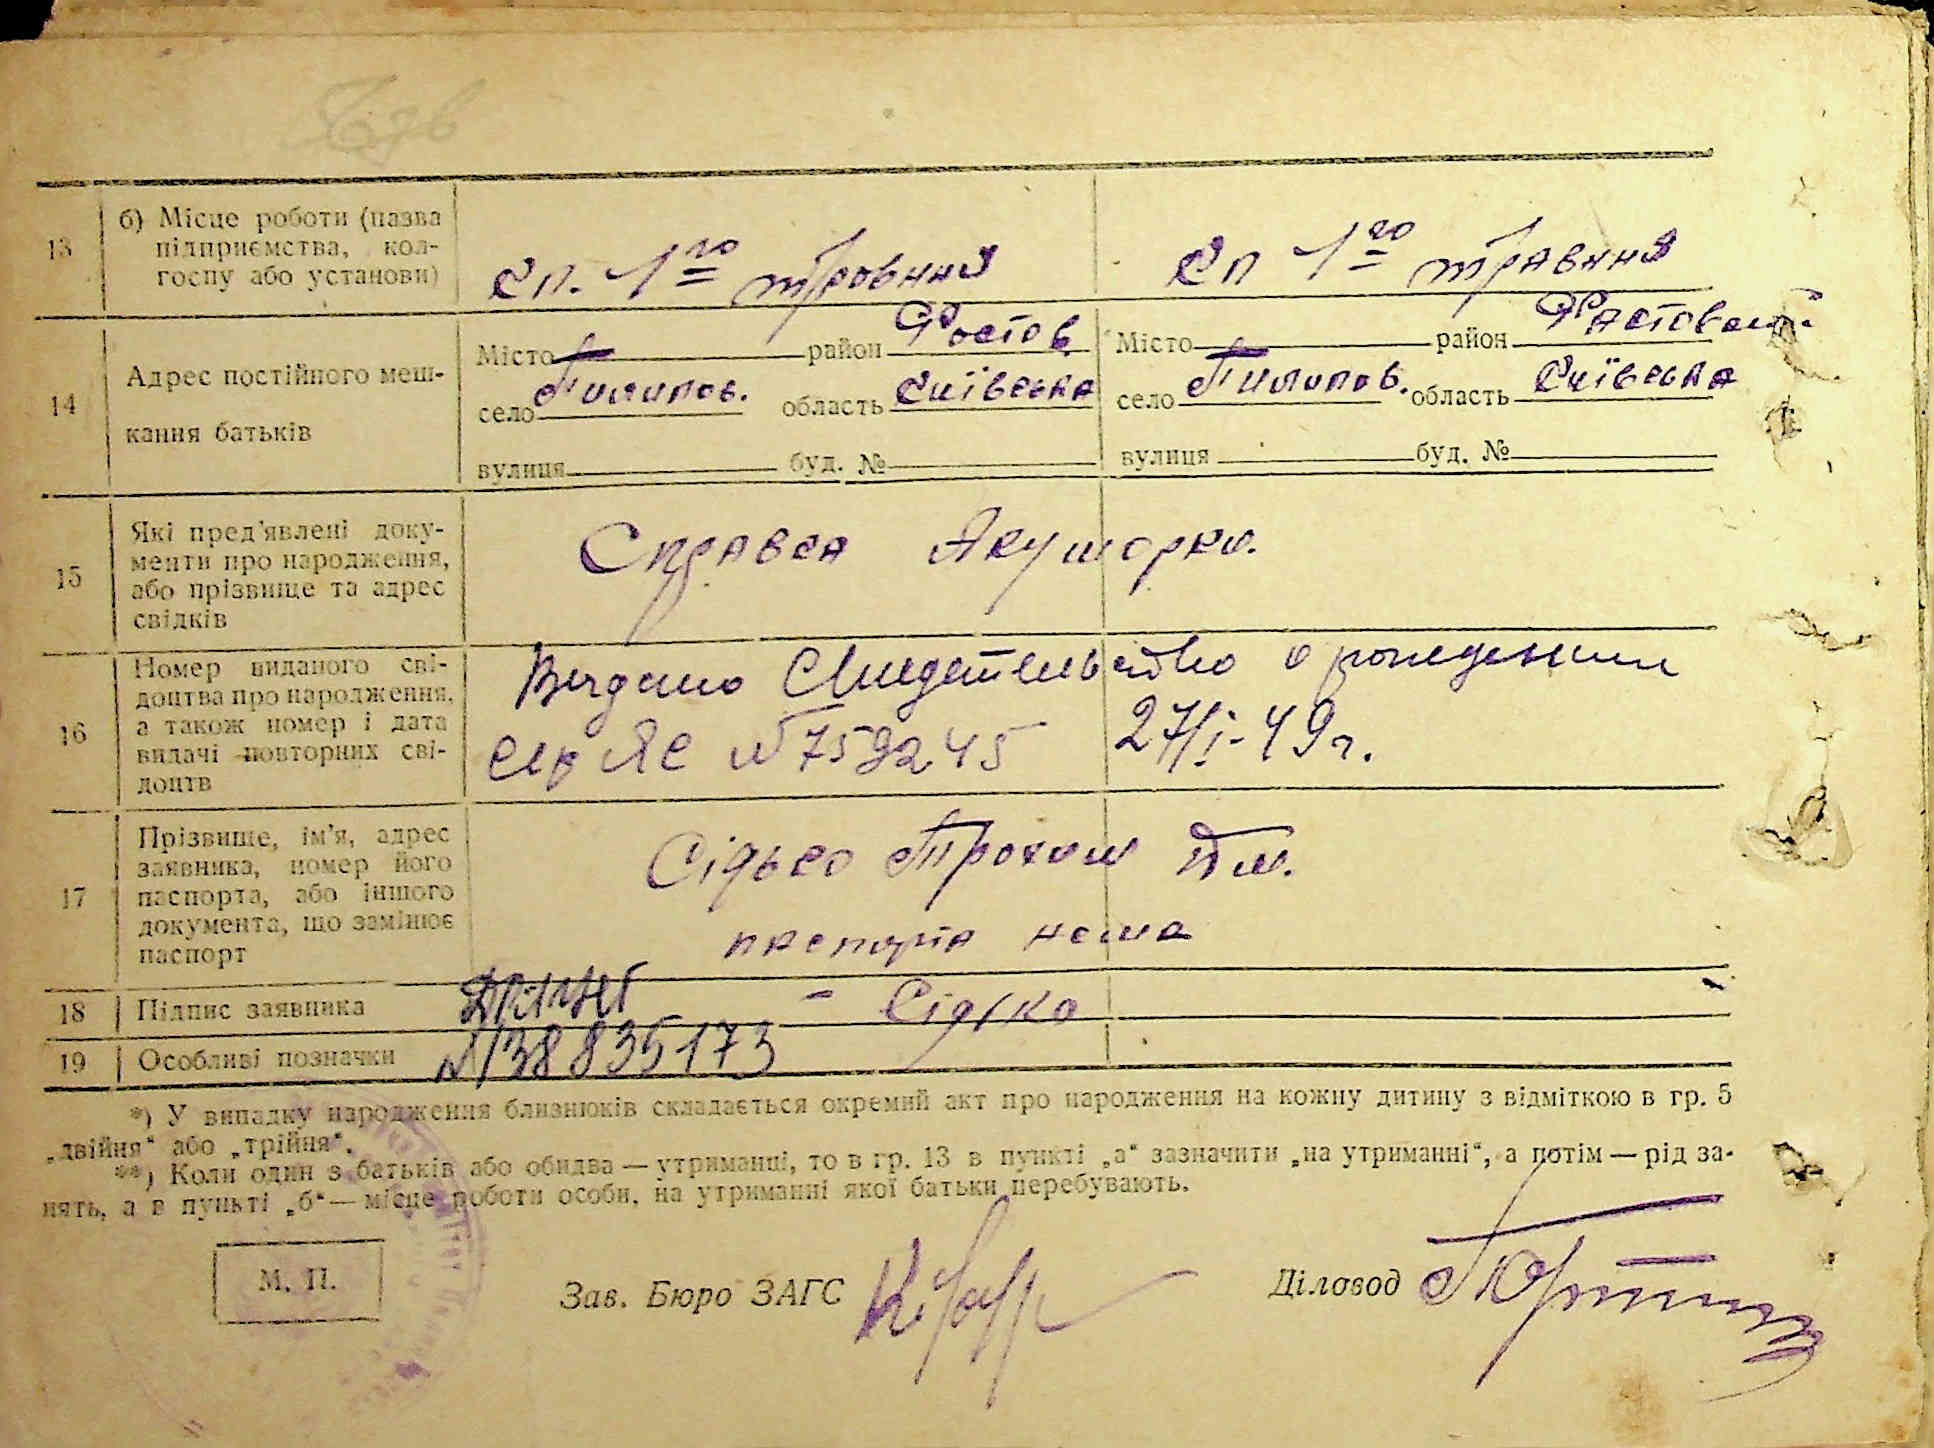 13
б) Місце роботи (назва
підприємства, кол-
госпу або установи)
кп. 1го травня
кп 1го травня
14
Адрес постійного меш-
кання батьків
Місто район Фастов
село Пилипов. область Київська
вулиця буд. №
Місто район Фастовськ.
село Пилипов. область Київська
вулиця буд. №
15
Які пред'явлені доку-
менти про народження,
або прізвище та адрес
свідків
Справка Якушорки.
16
Номер виданого сві-
доцтва про народження,
а також номер і дата
видачі повторних сві-
доцтв
Видано Свидетельство о рождении
сер ЯС №759245 27/I-49г.
17
Прізвище, ім'я, адрес
заявника, номер його
паспорта, або іншого
документа, що замінює
паспорт
Сідько Трохим Дм.
паспорта нема
18
Підпис заявника
- Сідько
19
Особливі позначки
№138835173
*) У випадку народження близнюків складається окремий акт про народження на кожну дитину з відміткою в гр. 5
„двійня“ або „трійня“.
**) Коли один з батьків або обидва — утриманці, то в гр. 13 в пункті „а“ зазначити „на утриманні“, а потім — рід за-
нять, а в пункті „б“ — місце роботи особи, на утриманні якої батьки перебувають.
М. П.
Зав. Бюро ЗАГС
Діловод